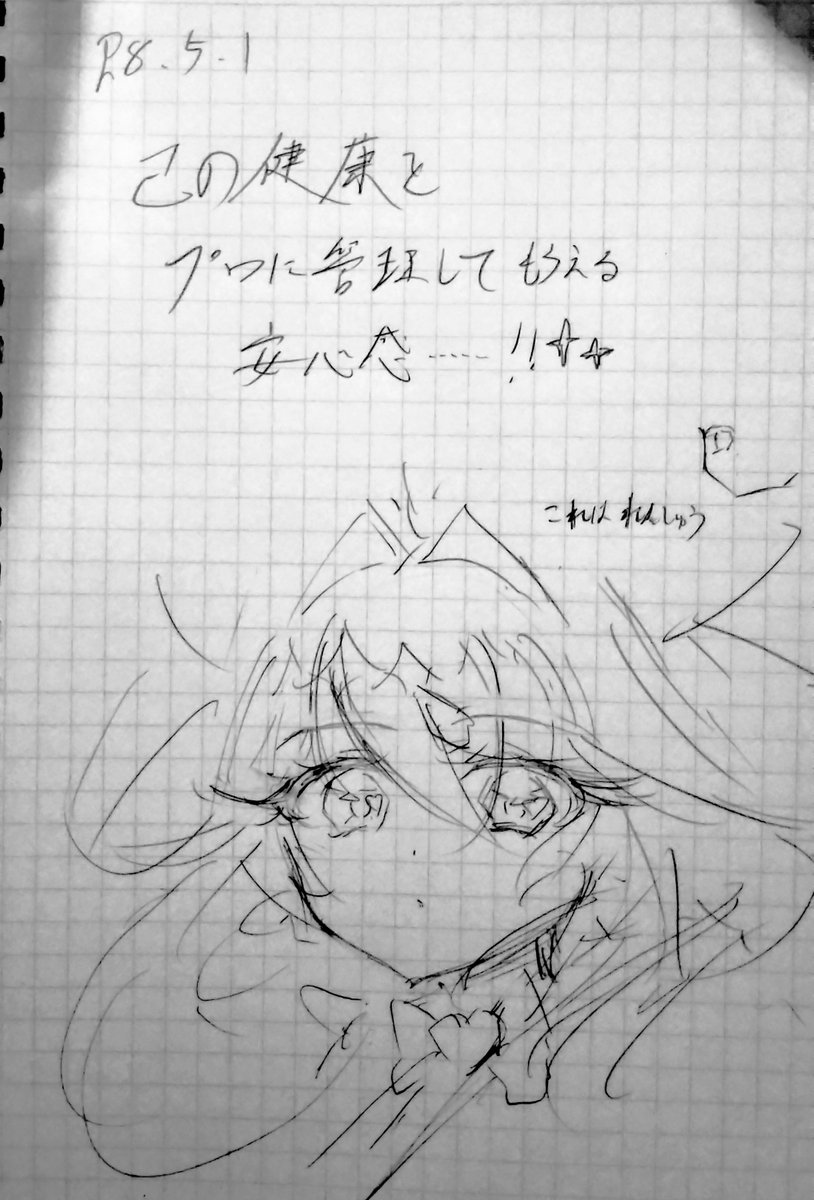 R8.5.1
己の健康を
プロに管理してもらえる
安心感……!!
これはれんしゅう